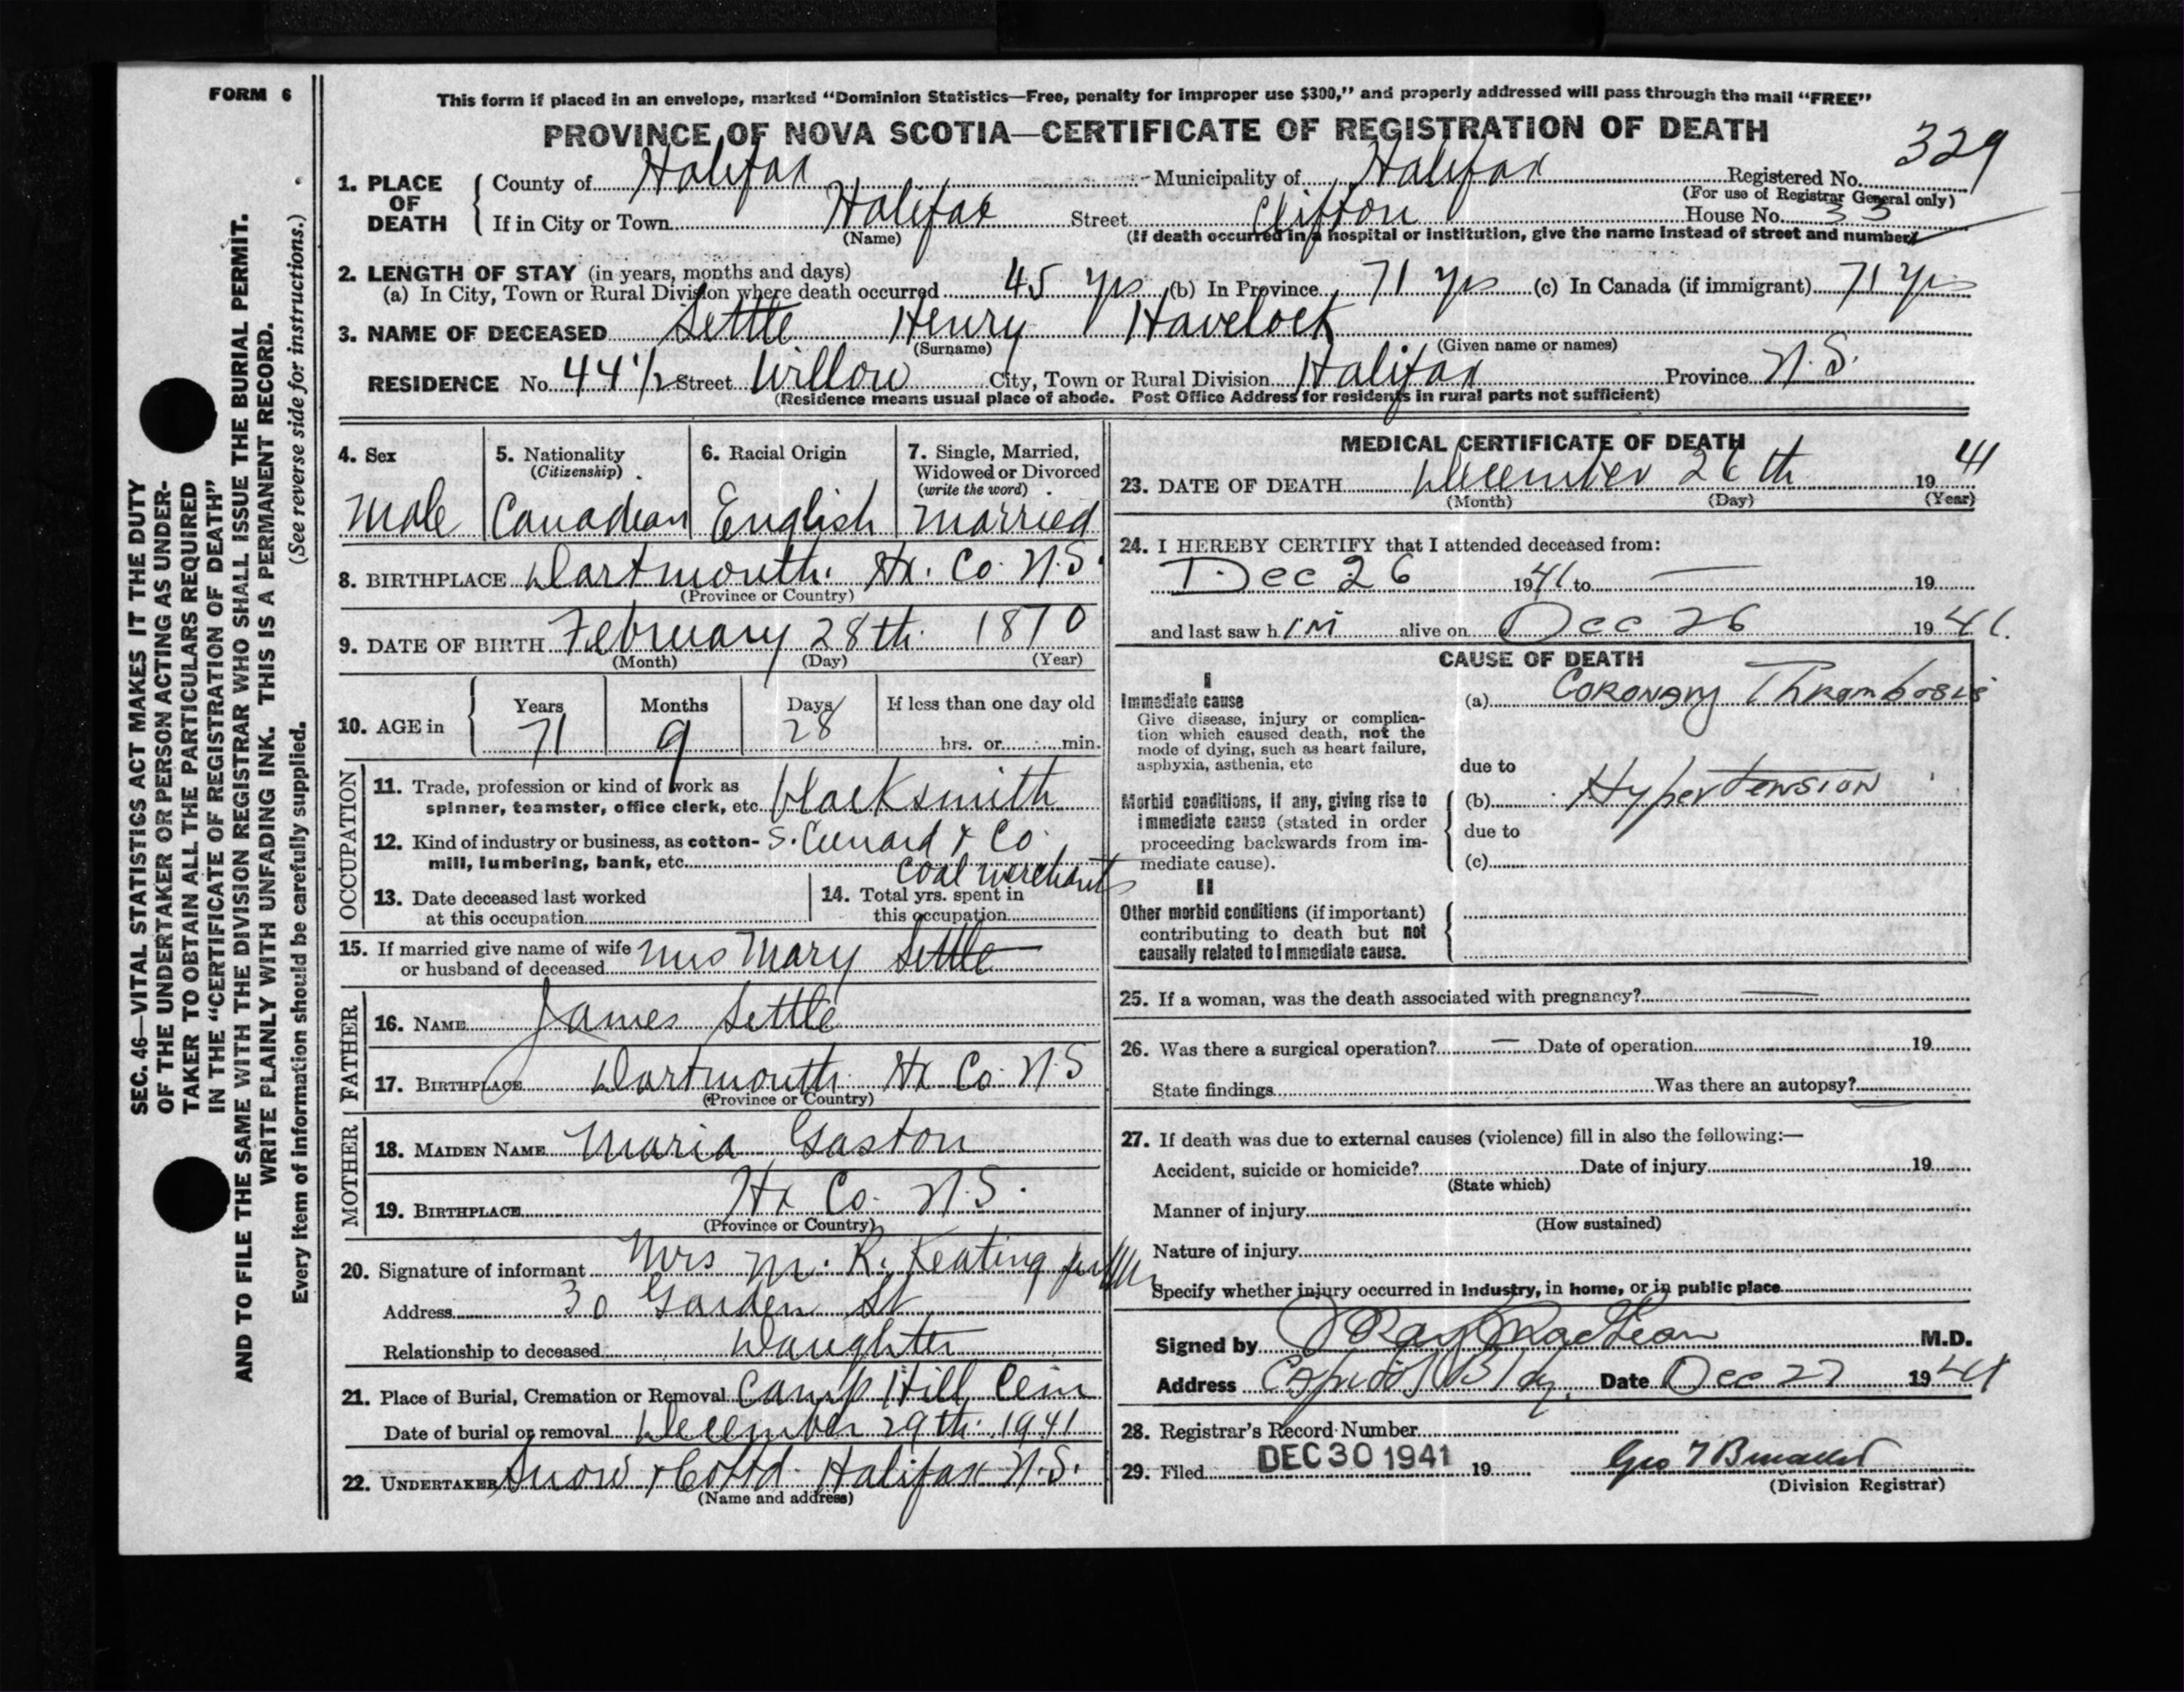 FORM 6
This form if placed in an envelope, marked "Dominion Statistics—Free, penalty for improper use $300," and properly addressed will pass through the mail "FREE"
PROVINCE OF NOVA SCOTIA—CERTIFICATE OF REGISTRATION OF DEATH
329
1. PLACE OF DEATH
County of Halifax Municipality of Halifax Registered No.
(For use of Registrar General only)
If in City or Town Halifax Street Clifton House No. 33
(Name) (If death occurred in a hospital or institution, give the name instead of street and number)
2. LENGTH OF STAY (in years, months and days)
(a) In City, Town or Rural Division where death occurred 45 yrs (b) In Province 71 yrs (c) In Canada (if immigrant) 71 yrs
3. NAME OF DECEASED Settle Henry Havelock
(Surname) (Given name or names)
RESIDENCE No. 44 1/2 Street Willow City, Town or Rural Division Halifax Province N.S.
(Residence means usual place of abode. Post Office Address for residents in rural parts not sufficient)
4. Sex
Male
5. Nationality
(Citizenship)
Canadian
6. Racial Origin
English
7. Single, Married,
Widowed or Divorced
(write the word)
Married
8. BIRTHPLACE Dartmouth. Hx. Co. N.S.
(Province or Country)
9. DATE OF BIRTH February 28th. 1870
(Month) (Day) (Year)
10. AGE in
Years Months Days If less than one day old
71 9 28 hrs. or min.
OCCUPATION
11. Trade, profession or kind of work as
spinner, teamster, office clerk, etc. blacksmith
12. Kind of industry or business, as cotton- S. Cunard & Co.
mill, lumbering, bank, etc. Coal merchants
13. Date deceased last worked
at this occupation
14. Total yrs. spent in
this occupation
15. If married give name of wife
or husband of deceased Mrs Mary Settle
FATHER
16. NAME James Settle
17. BIRTHPLACE Dartmouth. Hx Co. N.S
(Province or Country)
MOTHER
18. MAIDEN NAME Maria Gaston
19. BIRTHPLACE Hx Co. N.S.
(Province or Country)
20. Signature of informant Mrs M. R. Keating
Address 30 Garden St
Relationship to deceased Daughter
21. Place of Burial, Cremation or Removal Camp Hill Cem
Date of burial or removal December 29th. 1941
22. UNDERTAKER Snow & Co Ltd. Halifax N.S.
(Name and address)
MEDICAL CERTIFICATE OF DEATH
23. DATE OF DEATH December 26th 1941
(Month) (Day) (Year)
24. I HEREBY CERTIFY that I attended deceased from:
Dec 26 1941 to — 19
and last saw h im alive on Dec 26 1941.
CAUSE OF DEATH
I
Immediate cause
Give disease, injury or complica-
tion which caused death, not the
mode of dying, such as heart failure,
asphyxia, asthenia, etc
(a) Coronary Thrombosis
due to
Morbid conditions, if any, giving rise to
immediate cause (stated in order
proceeding backwards from im-
mediate cause).
(b) Hypertension
due to
(c)
II
Other morbid conditions (if important)
contributing to death but not
causally related to immediate cause.
25. If a woman, was the death associated with pregnancy? —
26. Was there a surgical operation? — Date of operation 19
State findings Was there an autopsy?
27. If death was due to external causes (violence) fill in also the following:—
Accident, suicide or homicide? Date of injury 19
(State which)
Manner of injury
(How sustained)
Nature of injury
Specify whether injury occurred in industry, in home, or in public place
Signed by J Ray MacLean M.D.
Address Capitol Bldg. Date Dec 27 1941
28. Registrar's Record Number
29. Filed DEC 30 1941 19
(Division Registrar)
SEC. 46—VITAL STATISTICS ACT MAKES IT THE DUTY
OF THE UNDERTAKER OR PERSON ACTING AS UNDER-
TAKER TO OBTAIN ALL THE PARTICULARS REQUIRED
IN THE "CERTIFICATE OF REGISTRATION OF DEATH"
AND TO FILE THE SAME WITH THE DIVISION REGISTRAR WHO SHALL ISSUE THE BURIAL PERMIT.
WRITE PLAINLY WITH UNFADING INK. THIS IS A PERMANENT RECORD.
Every item of information should be carefully supplied. (See reverse side for instructions.)